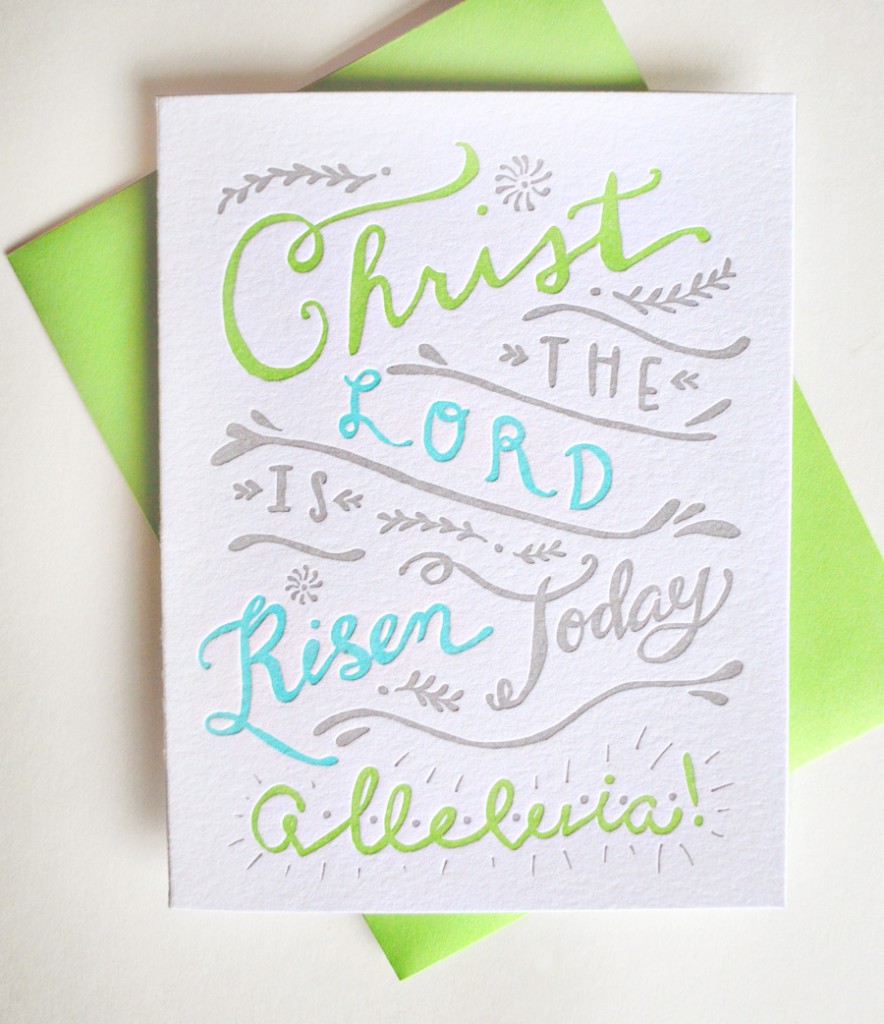 Christ
THE
LORD
IS
Risen Today
Alleluia!